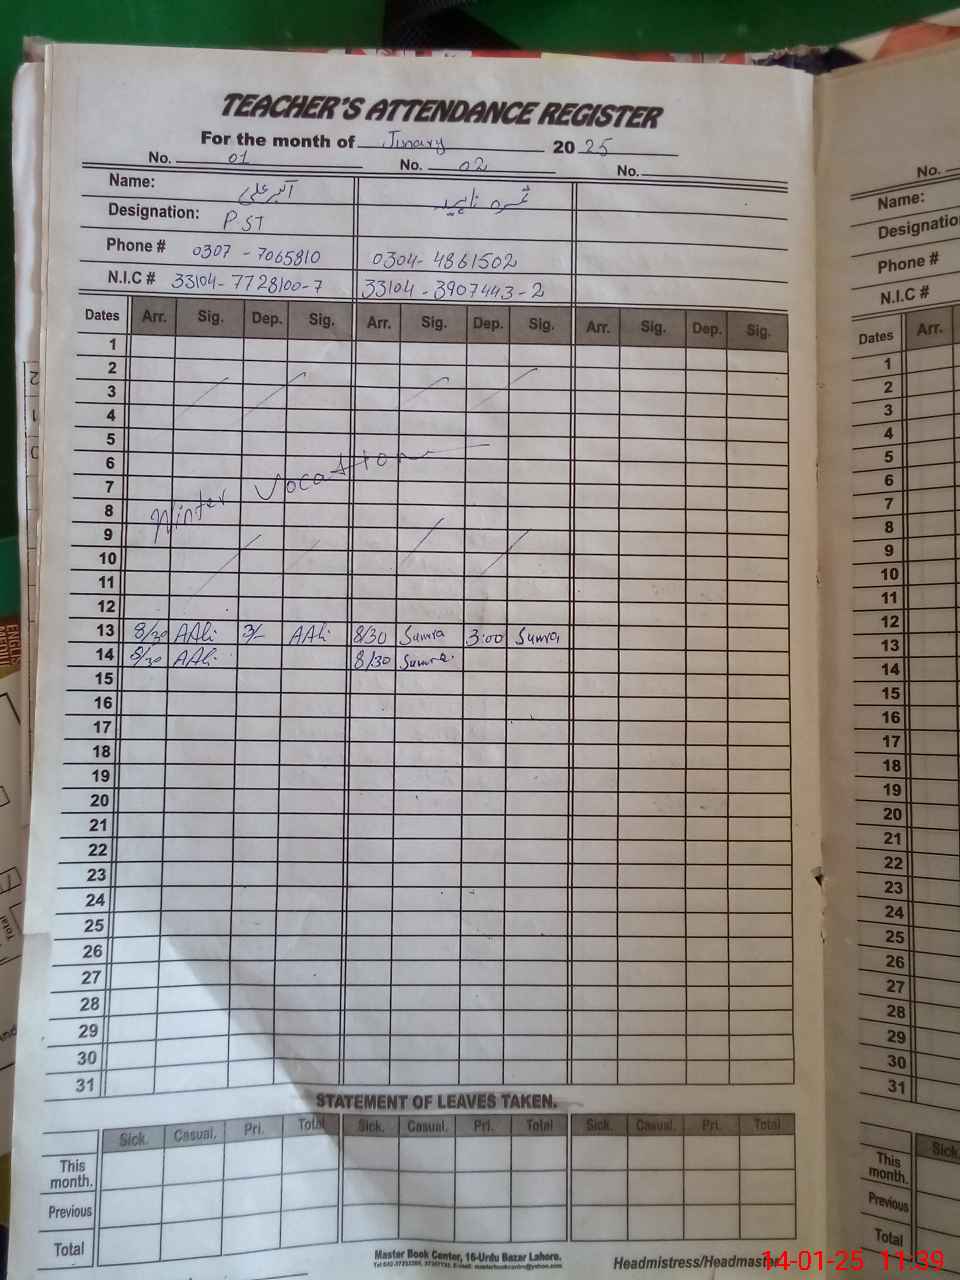 TEACHER'S ATTENDANCE REGISTER
For the month of Junary 20 25
No. 01 No. 02 No.
Name: اکبر علی ثمرہ ناہید
Designation: PST
Phone # 0307 - 7065810 0304-4861502
N.I.C # 33104-7728100-7 33104-3907443-2
Dates Arr. Sig. Dep. Sig. Arr. Sig. Dep. Sig. Arr. Sig. Dep. Sig.
1
2
3
4
5
6
7
8
Winter Vocation
9
10
11
12
13 8/30 AAli 3/- AAli 8/30 Sumra 3:00 Sumra
14 8/30 AAli 8/30 Sumra
15
16
17
18
19
20
21
22
23
24
25
26
27
28
29
30
31
STATEMENT OF LEAVES TAKEN.
Sick. Casual. Pri. Total Sick. Casual. Pri. Total Sick. Casual. Pri. Total
This month.
Previous
Total
Master Book Center, 16-Urdu Bazar Lahore.
Headmistress/Headmaster
No.
Name:
Designation
Phone #
N.I.C #
Dates Arr.
1
2
3
4
5
6
7
8
9
10
11
12
13
14
15
16
17
18
19
20
21
22
23
24
25
26
27
28
29
30
31
Sick.
This month.
Previous
Total
14-01-25 11:39